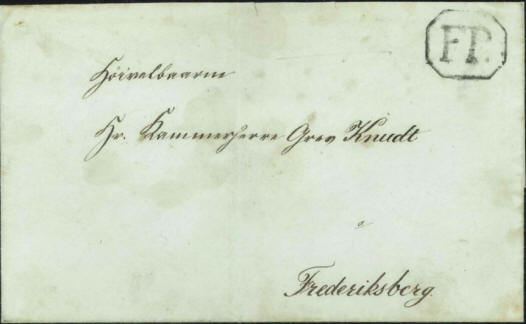 FP.
Høivelbaarne
Hr. Kammerherre Grev Knudt
a
Frederiksberg.